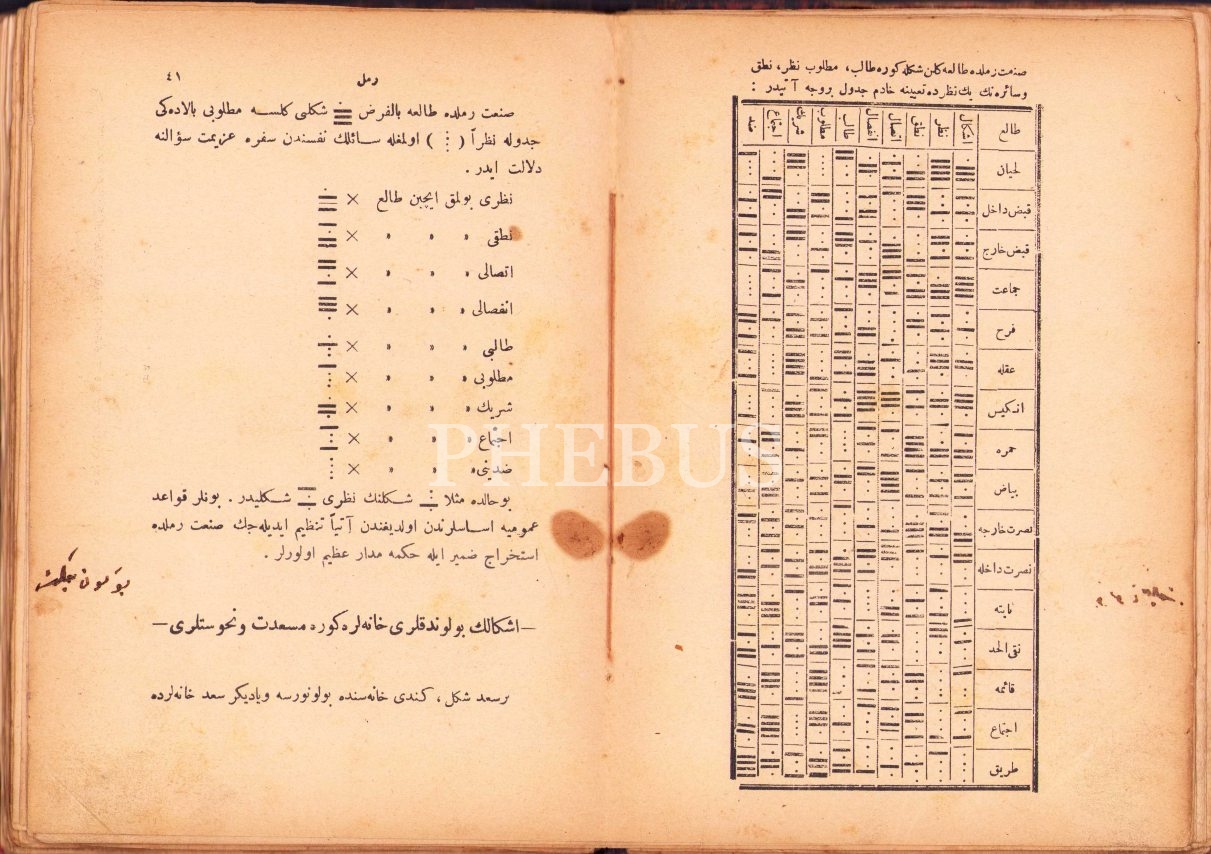 صنعت رملده طالعه كلن شكله كوره طالب، مطلوب نظر، نطق
وسائره‌نك يك نظرده تعيينه خادم جدول بروجه آتيدر :
طالع اشكال نظر نطق اتصال انفصال طالب مطلوب شريك اجتماع ضد
لحيان
قبض داخل
قبض خارج
جماعت
فرح
عقله
انكيس
حمره
بياض
نصرت خارجه
نصرت داخله
نقی الخد
قائمه
اجتماع
طريق
رمل
٤١
صنعت رملده طالعه بالفرض شكلی كلسه مطلوبی بالاده‌كی
جدوله نظراً ( ) اولمغله سائلك نفسندن سفره عزيمت سؤالنه
دلالت ايدر .
نظری بولمق ايچين طالع ×
نطقی » » » ×
اتصالی » » » ×
انفصالی » » » ×
طالبی » » » ×
مطلوبی » » » ×
شريك » » » ×
اجتماع » » » ×
ضدينی » » » ×
بوحالده مثلا شكلنك نظری شكليدر . بونلر قواعد
عموميه اساسلرندن اولديغندن آتياً تنظيم ايديله‌جك صنعت رملده
استخراج ضمير ايله حكمه مدار عظيم اولورلر .
— اشكالك بولوندقلری خانه‌لره كوره مسعدت و نحوستلری —
برسعد شكل ، كندی خانه‌سنده بولونورسه وياديكر سعد خانه‌لرده
PHEBUS